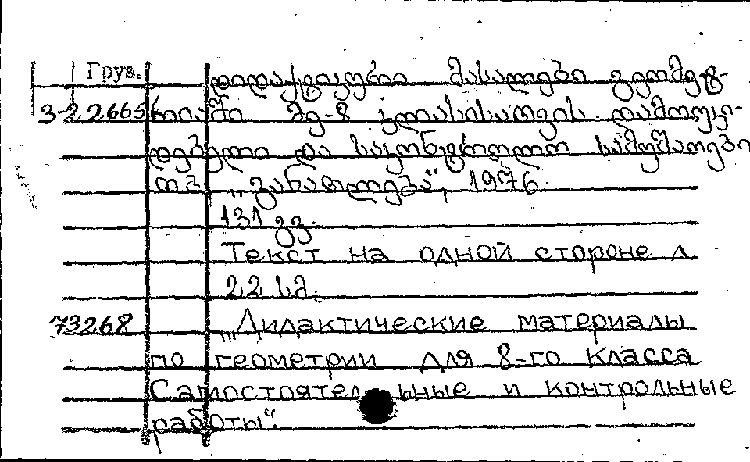 Груз.
დიდაქტიკური მასალები გეომეტ-
3-22665 რიაში მე-8 კლასისათვის. დამოუკი-
დებელი და საკონტროლო სამუშაოები
თბ. „განათლება“, 1976.
131 გვ.
Текст на одной стороне л.
22 სმ.
73268 „Дидактические материалы
по геометрии для 8-го класса
Самостоятельные и контрольные
работы“.